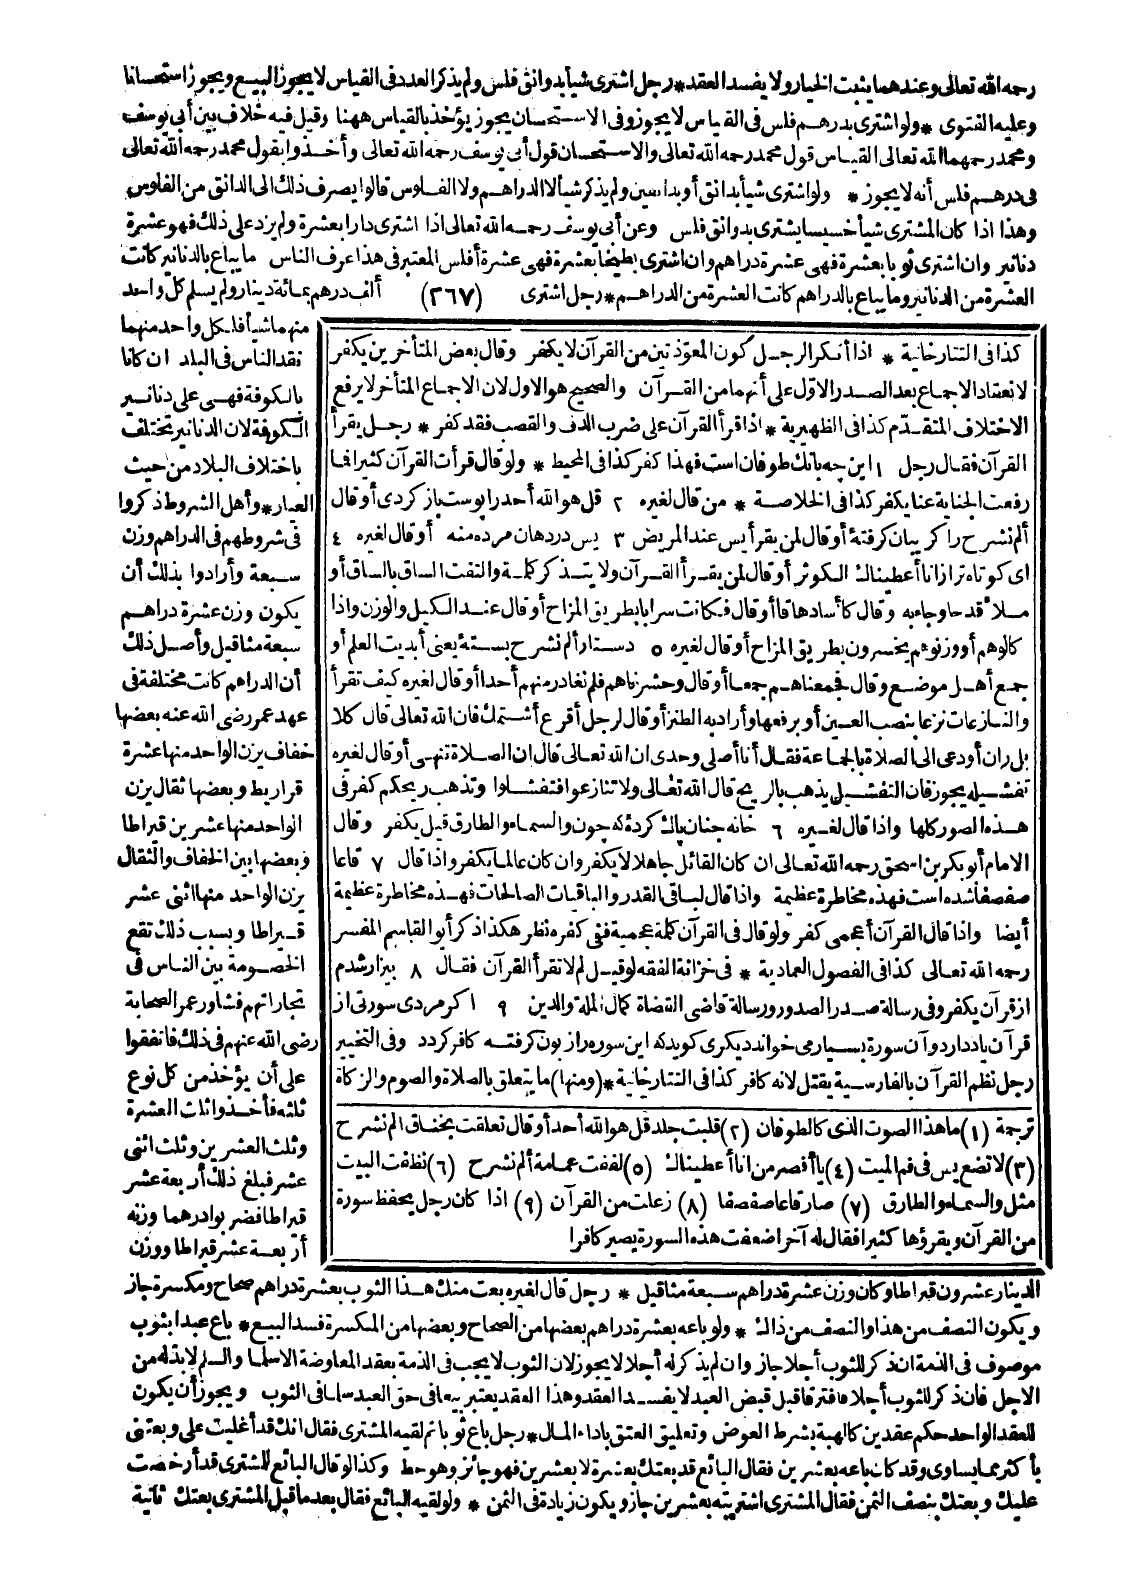 رحمه الله تعالى وعندهما يثبت الخيار ولا يفسد العقد * رجل اشترى شيأ بدوانق فلس ولم يذكر العدد فى القياس لا يجوز البيع ويجوز استحسانا
وعليه الفتوى * ولو اشترى بدرهم فلس فى القياس لا يجوز وفى الاستحسان يجوز يؤخذ بالقياس ههنا وقيل فيه خلاف بين أبى يوسف
ومحمد رحمهما الله تعالى القياس قول محمد رحمه الله تعالى والاستحسان قول أبى يوسف رحمه الله تعالى وأخذوا بقول محمد رحمه الله تعالى
فى درهم فلس أنه لا يجوز * ولو اشترى شيأ بدانق أو بدانقين ولم يذكر شيأ لا الدراهم ولا الفلوس قالوا يصرف ذلك الى الدانق من الفلوس
وهذا اذا كان المشترى شيأ خسيسا يشترى بدوانق فلس وعن أبى يوسف رحمه الله تعالى اذا اشترى دارا بعشرة ولم يزد على ذلك فهو عشرة
دنانير وان اشترى ثوبا بعشرة فهى عشرة دراهم وان اشترى بطيخا بعشرة فهى عشرة أفلس المعتبر فى هذا عرف الناس ما يباع بالدنانير كانت
العشرة من الدنانير وما يباع بالدراهم كانت العشرة من الدراهم * رجل اشترى (٣٦٧) ألف درهم بمائة دينار ولم يسلم كل واحد
منهما شيأ فلكل واحد منهما
نقد الناس فى البلد ان كانا
بالكوفة فهى على دنانير
الكوفة لان الدنانير تختلف
باختلاف البلاد من حيث
العيار * وأهل الشروط ذكروا
فى شروطهم فى الدراهم وزن
سبعة وأرادوا بذلك أن
يكون وزن عشرة دراهم
سبعة مثاقيل وأصل ذلك
أن الدراهم كانت مختلفة فى
عهد عمر رضى الله عنه بعضها
خفاف يزن الواحد منها عشرة
قراريط وبعضها ثقال يزن
الواحد منها عشرين قيراطا
وبعضها بين الخفاف والثقال
يزن الواحد منها اثنى عشر
قيراطا وبسبب ذلك تقع
الخصومة بين الناس فى
تجاراتهم فشاور عمر الصحابة
رضى الله عنهم فى ذلك فاتفقوا
على أن يؤخذ من كل نوع
ثلثه فأخذوا ثلث العشرة
وثلث العشرين وثلث اثنى
عشر فبلغ ذلك أربعة عشر
قيراطا فضربوا درهما وزنه
أربعة عشر قيراطا ووزن
كذا فى التتارخانية * اذا أنكر الرجل كون المعوذتين من القرآن لا يكفر وقال بعض المتأخرين يكفر
لانعقاد الاجماع بعد الصدر الاول على أنهما من القرآن والصحيح هو الاول لان الاجماع المتأخر لا يرفع
الاختلاف المتقدم كذا فى الظهيرية * اذا قرأ القرآن على ضرب الدف والقصب فقد كفر * رجل يقرأ
القرآن فقال رجل ١ اين چه بانك طوفان است فهذا كفر كذا فى المحيط * ولو قال قرأت القرآن كثيرا فما
رفعت الجناية عنا يكفر كذا فى الخلاصة * من قال لغيره ٢ قل هو الله أحد را پوست باز كردى أو قال
ألم نشرح را كريبان كرفتۀ أو قال لمن يقرأ يس عند المريض ٣ يس در دهان مرده منه أو قال لغيره ٤
اى كوتاه تر از انا أعطيناك الكوثر أو قال لمن يقرأ القرآن ولا يتذكر كلمة والتفت الساق بالساق أو
ملأ قدحا وجاء به وقال كأسا دهاقا أو قال فكانت سرابا بطريق المزاح أو قال عند الكيل والوزن واذا
كالوهم أو وزنوهم يخسرون بطريق المزاح أو قال لغيره ٥ دستار ألم نشرح بستۀ يعنى أبديت العلم أو
جمع أهل موضع وقال فجمعناهم جمعا أو قال وحشرناهم فلم نغادر منهم أحدا أو قال لغيره كيف تقرأ
والنازعات نزعا بنصب العين أو برفعها وأراد به الطنز أو قال لرجل أقرع أشتمك فان الله تعالى قال كلا
بل ران أو دعى الى الصلاة بالجماعة فقال أنا أصلى وحدى ان الله تعالى قال ان الصلاة تنهى أو قال لغيره
تفشيله يجوز فان التفشيل يذهب بالريح قال الله تعالى ولا تنازعوا فتفشلوا وتذهب ريحكم كفر فى
هذه الصور كلها واذا قال لغيره ٦ خانه چنان پاك كردۀ كه چون والسماء والطارق قيل يكفر وقال
الامام أبو بكر بن اسحق رحمه الله تعالى ان كان القائل جاهلا لا يكفر وان كان عالما يكفر واذا قال ٧ قاعا
صفصفا شده است فهذه مخاطرة عظيمة واذا قال لباقى القدر والباقيات الصالحات فهذه مخاطرة عظيمة
أيضا واذا قال القرآن أعجمى كفر ولو قال فى القرآن كلمة عجمية ففى كفره نظر هكذا ذكر أبو القاسم المفسر
رحمه الله تعالى كذا فى الفصول العمادية * فى خزانة الفقه لو قيل لم لا تقرأ القرآن فقال ٨ بيزار شدم
از قرآن يكفر وفى رسالة صدر الصدور ورسالة قاضى القضاة كمال الملة والدين ٩ اكر مردى سورتى از
قرآن ياد دارد وآن سورة بسيار مى خواند ديكرى كويد كه اين سوره را زبون كرفتۀ كافر كردد وفى التخيير
رجل نظم القرآن بالفارسية يقتل لانه كافر كذا فى التتارخانية * (ومنها) ما يتعلق بالصلاة والصوم والزكاة
ترجمة (١) ما هذا الصوت الذى كالطوفان (٢) قلبت جلد قل هو الله أحد أو قال تعلقت بخناق الم نشرح
(٣) لا تضع يس فى فم الميت (٤) يا أقصر من انا أعطيناك (٥) لففت عمامة ألم نشرح (٦) نظفت البيت
مثل والسماء والطارق (٧) صار قاعا صفصفا (٨) زعلت من القرآن (٩) اذا كان رجل يحفظ سورة
من القرآن ويقرؤها كثيرا فقال له آخر اضعفت هذه السورة يصير كافرا
الدينار عشرون قيراطا وكان وزن عشرة دراهم سبعة مثاقيل * رجل قال لغيره بعت منك هذا الثوب بعشرة دراهم صحاح ومكسرة جاز
ويكون النصف من هذا والنصف من ذاك * ولو باعه بعشرة دراهم بعضها من الصحاح وبعضها من المكسرة فسد البيع * باع عبدا بثوب
موصوف فى الذمة ان ذكر للثوب أجلا جاز وان لم يذكر له أجلا لا يجوز لان الثوب لا يجب فى الذمة بعقد المعاوضة الا سلما والسلم لا بد له من
الاجل فان ذكر للثوب أجلا فافترقا قبل قبض العبد لا يفسد العقد وهذا العقد يعتبر بيعا فى حق العبد سلما فى الثوب ويجوز أن يكون
للعقد الواحد حكم عقدين كالهبة بشرط العوض وتعليق العتق باداء المال * رجل باع ثوبا ثم لقيه المشترى فقال انك قد أغليت على وبعتنى
بأكثر مما يساوى وقد كان باعه بعشرين فقال البائع قد بعتك بعشرة لا بعشرين فهو جائز وهو حط وكذا لو قال البائع للمشترى قد أرخصت
عليك وبعتك بنصف الثمن فقال المشترى اشتريته بعشرين جاز ويكون زيادة فى الثمن * ولو لقيه البائع فقال بعد ما قبل المشترى بعتك ثانية